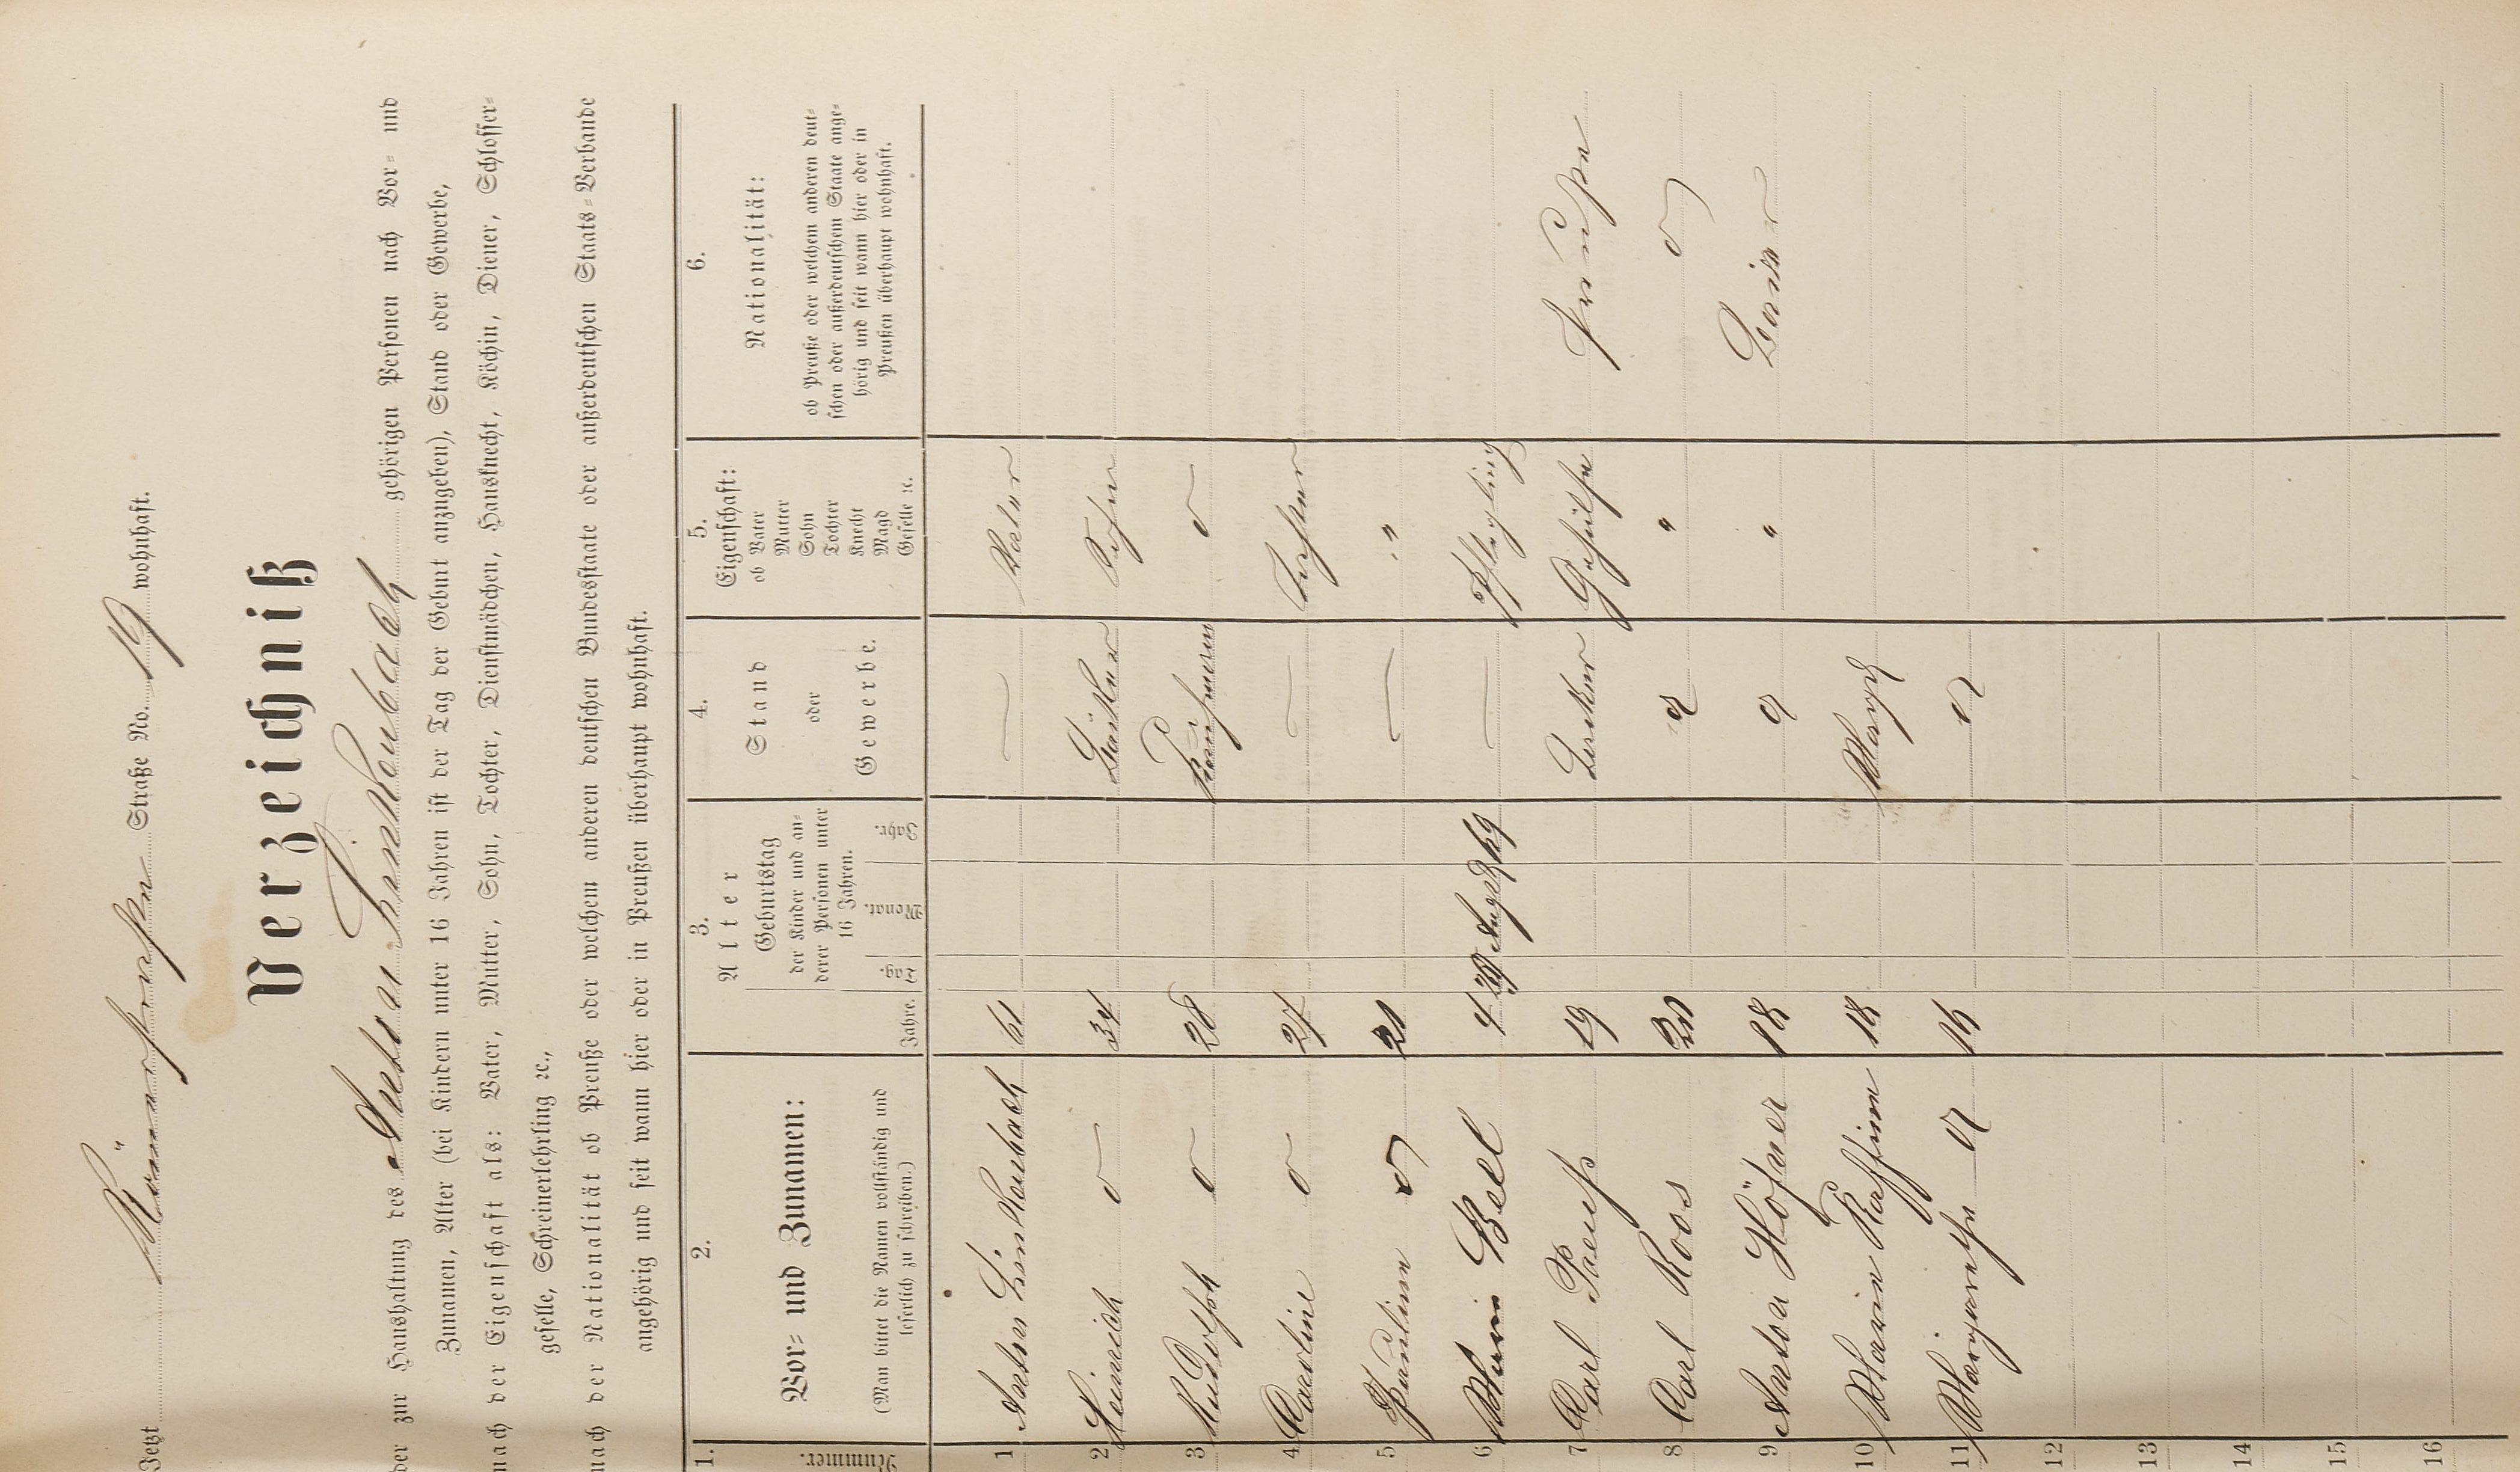 Jetzt Römerstraße Straße No. 19 wohnhaft.
Verzeichniß
der zur Haushaltung des Anton Linkenbach gehörigen Personen nach Vor- und
Zunamen, Alter (bei Kindern unter 16 Jahren ist der Tag der Geburt anzugeben), Stand oder Gewerbe,
nach der Eigenschaft als: Vater, Mutter, Sohn, Tochter, Dienstmädchen, Hausknecht, Köchin, Diener, Schlosser-
geselle, Schreinerlehrling ꝛc.,
nach der Nationalität ob Preuße oder welchem anderen deutschen Bundesstaate oder außerdeutschen Staats-Verbande
angehörig und seit wann hier oder in Preußen überhaupt wohnhaft.
1. 2. 3. 4. 5. 6.
Nummer.
Vor- und Zunamen:
(Man bittet die Namen vollständig und
leserlich zu schreiben.)
Alter
Jahre.
Geburtstag
der Kinder und an-
derer Personen unter
16 Jahren.
Tag. Monat. Jahr.
Stand
oder
Gewerbe.
Eigenschaft:
ob Vater
Mutter
Sohn
Tochter
Knecht
Magd
Geselle ꝛc.
Nationalität:
ob Preuße oder welchem anderen deut-
schen oder außerdeutschen Staate ange-
hörig und seit wann hier oder in
Preußen überhaupt wohnhaft.
1 Anton Linkenbach 61 — Vater
2 Heinrich 34 Bäcker Sohn
3 Rudolph 28 Kaufmann
4 Caroline 24 — Tochter
5 Pauline 21 — "
6 Beel 4 29 August 69 — Pflegling
7 Carl 19 Becker Gehülfe Preuße
8 Carl Roos 20 "
9 Anton Höfner 18 " Baier
10 18 Magd
11 Margarethe 16
12
13
14
15
16